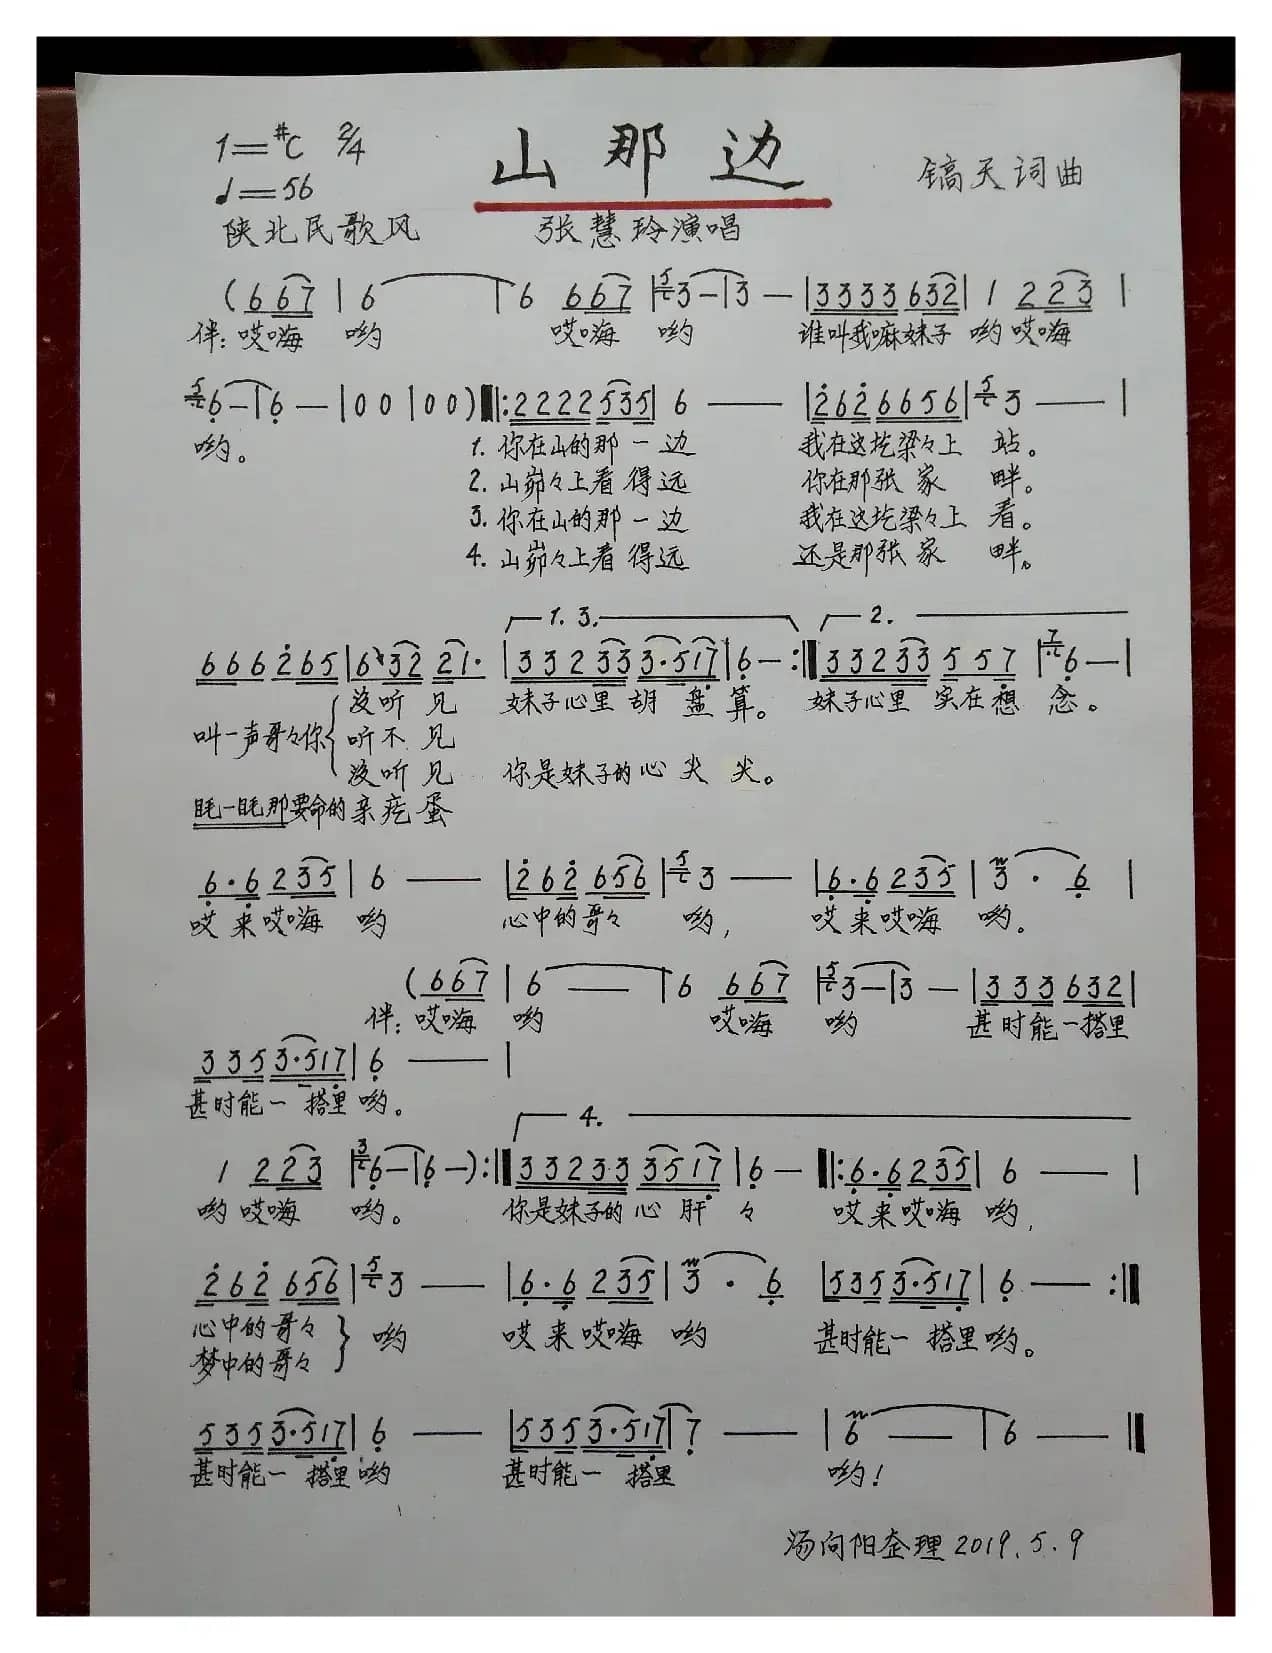 1=#C 2/4 山那边 镐天词曲
♩=56
陕北民歌风 张慧玲演唱
(6 67 | 6 | 6 6 67 | 5 3 - | 3 - | 3333 632 | 1 2 23 |
伴:哎嗨 哟 哎嗨 哟 谁叫我嘛妹子 哟 哎嗨
5 6 - | 6 - | 00 | 00 ) ‖: 2222 535 | 6 — | 262 6656 | 5 3 — |
哟。 1. 你在山的那一边 我在这圪梁々上 站。
2. 山峁々上看得远 你在那张家 畔。
3. 你在山的那一边 我在这圪梁々上 看。
4. 山峁々上看得远 还是那张家 畔。
1. 3. 2.
666 265 | 6 32 21· | 33233 3·517 | 6 - :‖ 33233 557 | 7 6 - |
没听见 妹子心里胡盘算。 妹子心里实在想念。
叫一声哥々你{听不见
没听见 你是妹子的心尖尖。
眊一眊那要命的亲疙蛋
6·6 235 | 6 — | 262 656 | 5 3 — | 6·6 235 | 3 · 6 |
哎来哎嗨 哟 心中的哥々 哟, 哎来哎嗨 哟。
(667 | 6 — | 6 667 | 5 3 - | 3 - | 333 632 |
伴:哎嗨 哟 哎嗨 哟 甚时能一搭里
335 3·517 | 6 — |
甚时能一搭里哟。
4.
1 2 23 | 3 6 - | 6 - ) :‖ 33233 3517 | 6 - ‖: 6·6 235 | 6 — |
哟 哎嗨 哟。 你是妹子的心肝々 哎来哎嗨 哟,
262 656 | 5 3 — | 6·6 235 | 3 · 6 | 535 3·517 | 6 — :‖
心中的哥々} 哟 哎来哎嗨 哟 甚时能一搭里哟。
梦中的哥々
535 3·517 | 6 — | 535 3·517 | 7 — | 6 — | 6 — ‖
甚时能一搭里哟 甚时能一搭里 哟!
汤向阳整理 2019.5.9